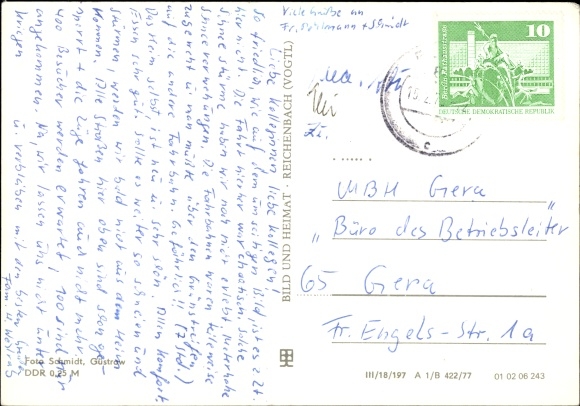 Viele Grüße an
Fr. Pohlmann + Schmidt
Liebe Kolleginnen, liebe Kollegen!
So friedlich wie auf dem umseitigen Bild ist es z. Zt.
hier nicht. Die Fahrt hierher war chaotisch, solche
Schneestürme haben wir noch nicht erlebt. Meterhohe
Schneeverwehungen. Die Fahrbahnen waren teilweise
zugeweht u. man mußte über den Grünstreifen
auf die andere Fahrbahn. Gefährlich!! (2 Std.)
Das Heim selbst ist neu u. sehr schön. Allen Komfort,
Essen sehr gut. Sollte es weiter so schneien und
stürmen, werden wir bald nicht aus dem Heim
können. Die Straßen hier oben sind schon ge-
sperrt + die Züge fahren auch nicht mehr.
400 Besucher werden erwartet, 100 sind hier
angekommen. Na, wir lassen uns nicht unter-
kriegen u. verbleiben mit den besten Grüßen
Fam. H.
BILD UND HEIMAT · REICHENBACH (VOGTL)
Foto Schmidt, Güstrow
DDR 0,25 M
10
Berlin, Rathausstraße
DEUTSCHE DEMOKRATISCHE REPUBLIK
MBH Gera
"Büro des Betriebsleiter"
65 Gera
Fr.-Engels-Str. 1a
III/18/197 A 1/B 422/77 01 02 06 243